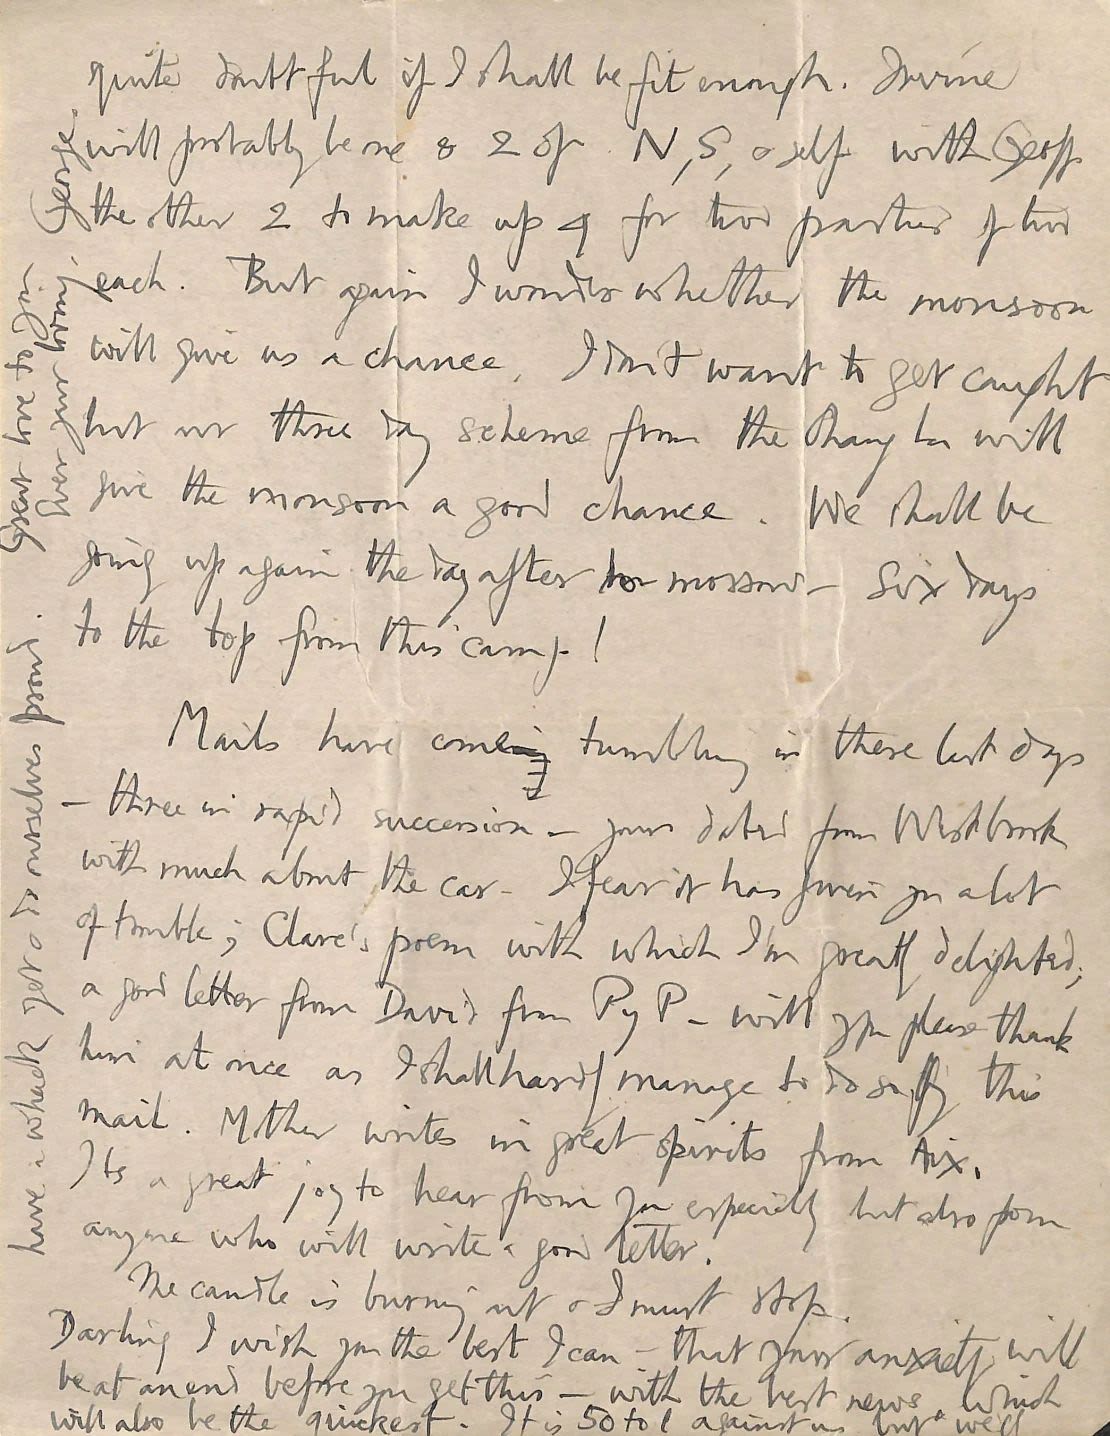 quite doubtful if I shall be fit enough. Irvine
will probably be one & 2 of N, S, & self with Geoff
the other 2 to make up 4 for two parties of two
each. But again I wonder whether the monsoon
will give us a chance. I don't want to get caught
but our three day scheme from the Chang La will
give the monsoon a good chance. We shall be
going up again the day after to morrow – Six days
to the top from this camp!
Mails have come tumbling in these last days
– three in rapid succession – yours dated from Westbrook
with much about the car – I fear it has given you a lot
of trouble; Clare's poem with which I'm greatly delighted;
a good letter from David from PyP – will you please thank
him at once as I shall hardly manage to do so by this
mail. Mother writes in great spirits from Aix.
Its a great joy to hear from you especially but also from
anyone who will write a good letter.
The candle is burning out & I must stop.
Darling I wish you the best I can – that your anxiety will
be at an end before you get this – with the best news. Which
will also be the quickest. It is 50 to 1 against us but we'll
have a whack yet & do ourselves proud.
Great love to you
Ever your loving George.